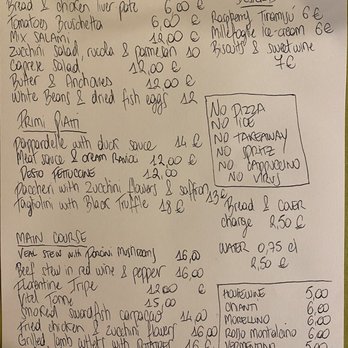 Bread & chicken liver patè 6,00 €
Tomatoes Bruschetta 6,00 €
Mix SALAMI 12,00 €
Zucchini salad, rucola & parmesan 10
Caprese Salad 12,00 €
Butter & Anchovies 12,00
White Beans & dried fish eggs 12
PRIMI PIATTI
Pappardelle with duck sauce 14 €
Meat sauce & cream Ravioli 12,00 €
PESTO FETTUCCINE 12,00
Paccheri with zucchini flowers & saffron 13 €
Tagliolini with Black Truffle 18 €
MAIN COURSE
VEAL STEW WITH PORCINI MUSHROOMS 16,00
Beef stew in red wine & pepper 16,00
Florentine Tripe 12,00 €
Vitel Tonnè 15,00
Smoked swordfish carpaccio 14,00
Fried chicken & zucchini flowers 16,00
Grilled lamb cutlets with
Raspberry Tiramisu 6 €
Millefoglie ice-cream 6 €
Biscuits & sweet wine
7 €
NO PIZZA
NO ICE
NO TAKEAWAY
NO SPRITZ
NO CAPPUCCINO
NO VIRUS
Bread & cover
charge 2,50 €
WATER 0,75 cl
2,50 €
HOUSEWINE 5,00
CHIANTI 5,00
MORELLINO 6,00
Rosso Montalcino 6,00